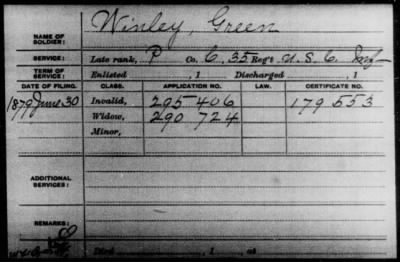 NAME OF SOLDIER: Winley, Green
SERVICE: Late rank, P Co. C, 35 Reg't U.S.C. Inf
TERM OF SERVICE: Enlisted , 1 Discharged , 1
DATE OF FILING. CLASS. APPLICATION NO. LAW. CERTIFICATE NO.
1879 June 30 Invalid, 295 406 179 553
Widow, 290 724
Minor,
ADDITIONAL SERVICES:
REMARKS:
Died , 1 , at